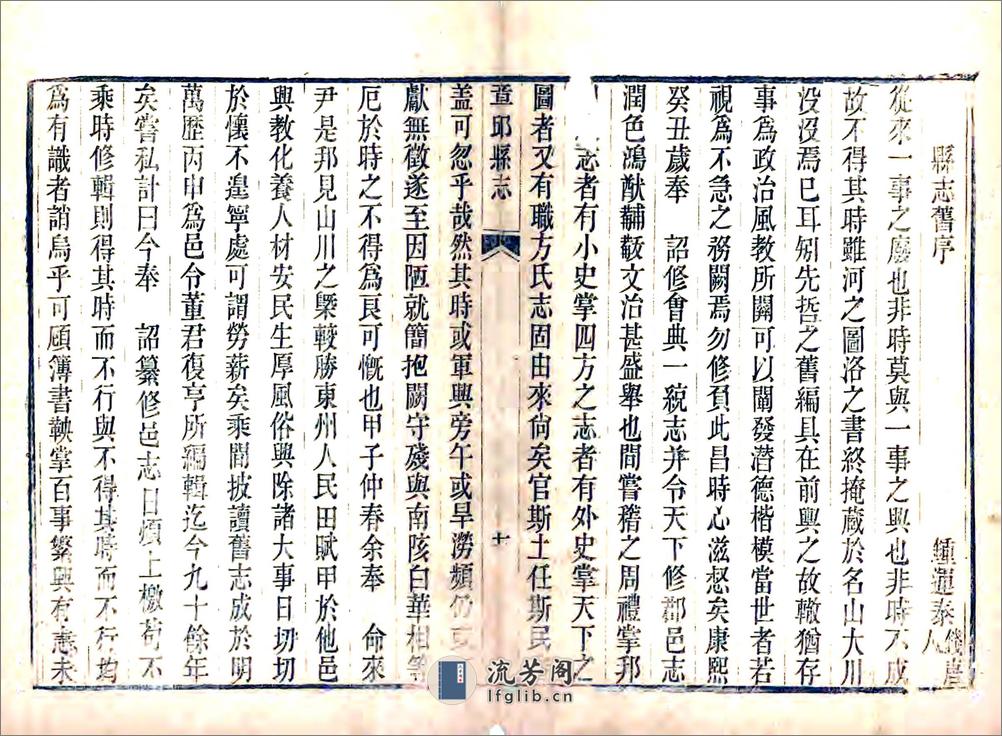 縣志舊序　鍾運泰錢唐人
從來一事之廢也非時莫與一事之興也非時不成
故不得其時雖河之圖洛之書終掩蔵於名山大川
没没焉已耳矧先哲之舊編具在前輿之故轍猶存
事為政治風教所關可以闡發潛德楷模當世者若
視為不急之務闕焉勿修負此昌時心滋惄矣康熙
癸丑歲奉　詔修會典一統志并令天下修郡邑志
潤色鴻猷黼黻文治甚盛舉也間嘗稽之周禮掌邦
志者有小史掌四方之志者有外史掌天下之
圖者又有職方氏志固由來尚矣官斯土任斯民
章邱縣志　十
盖可忽乎哉然其時或軍興旁午或旱澇頻仍或
獻無徵遂至因陋就簡抱闕守殘與南陔白華相等
厄於時之不得為良可慨也甲子仲春余奉　命來
尹是邦見山川之槩較勝東州人民田賦甲於他邑
興教化養人材安民生厚風俗興除諸大事日切切
於懷不遑寧處可謂勞薪矣乘間披讀舊志成於明
萬歷丙申為邑令董君復亨所編輯迄今九十餘年
矣嘗私計曰今奉　詔纂修邑志日煩上檄苟不
乘時修輯則得其時而不行與不得其時而不行均
為有識者誚烏乎可顧簿書鞅掌百事繁興有志未
流芳阁
lfglib.cn